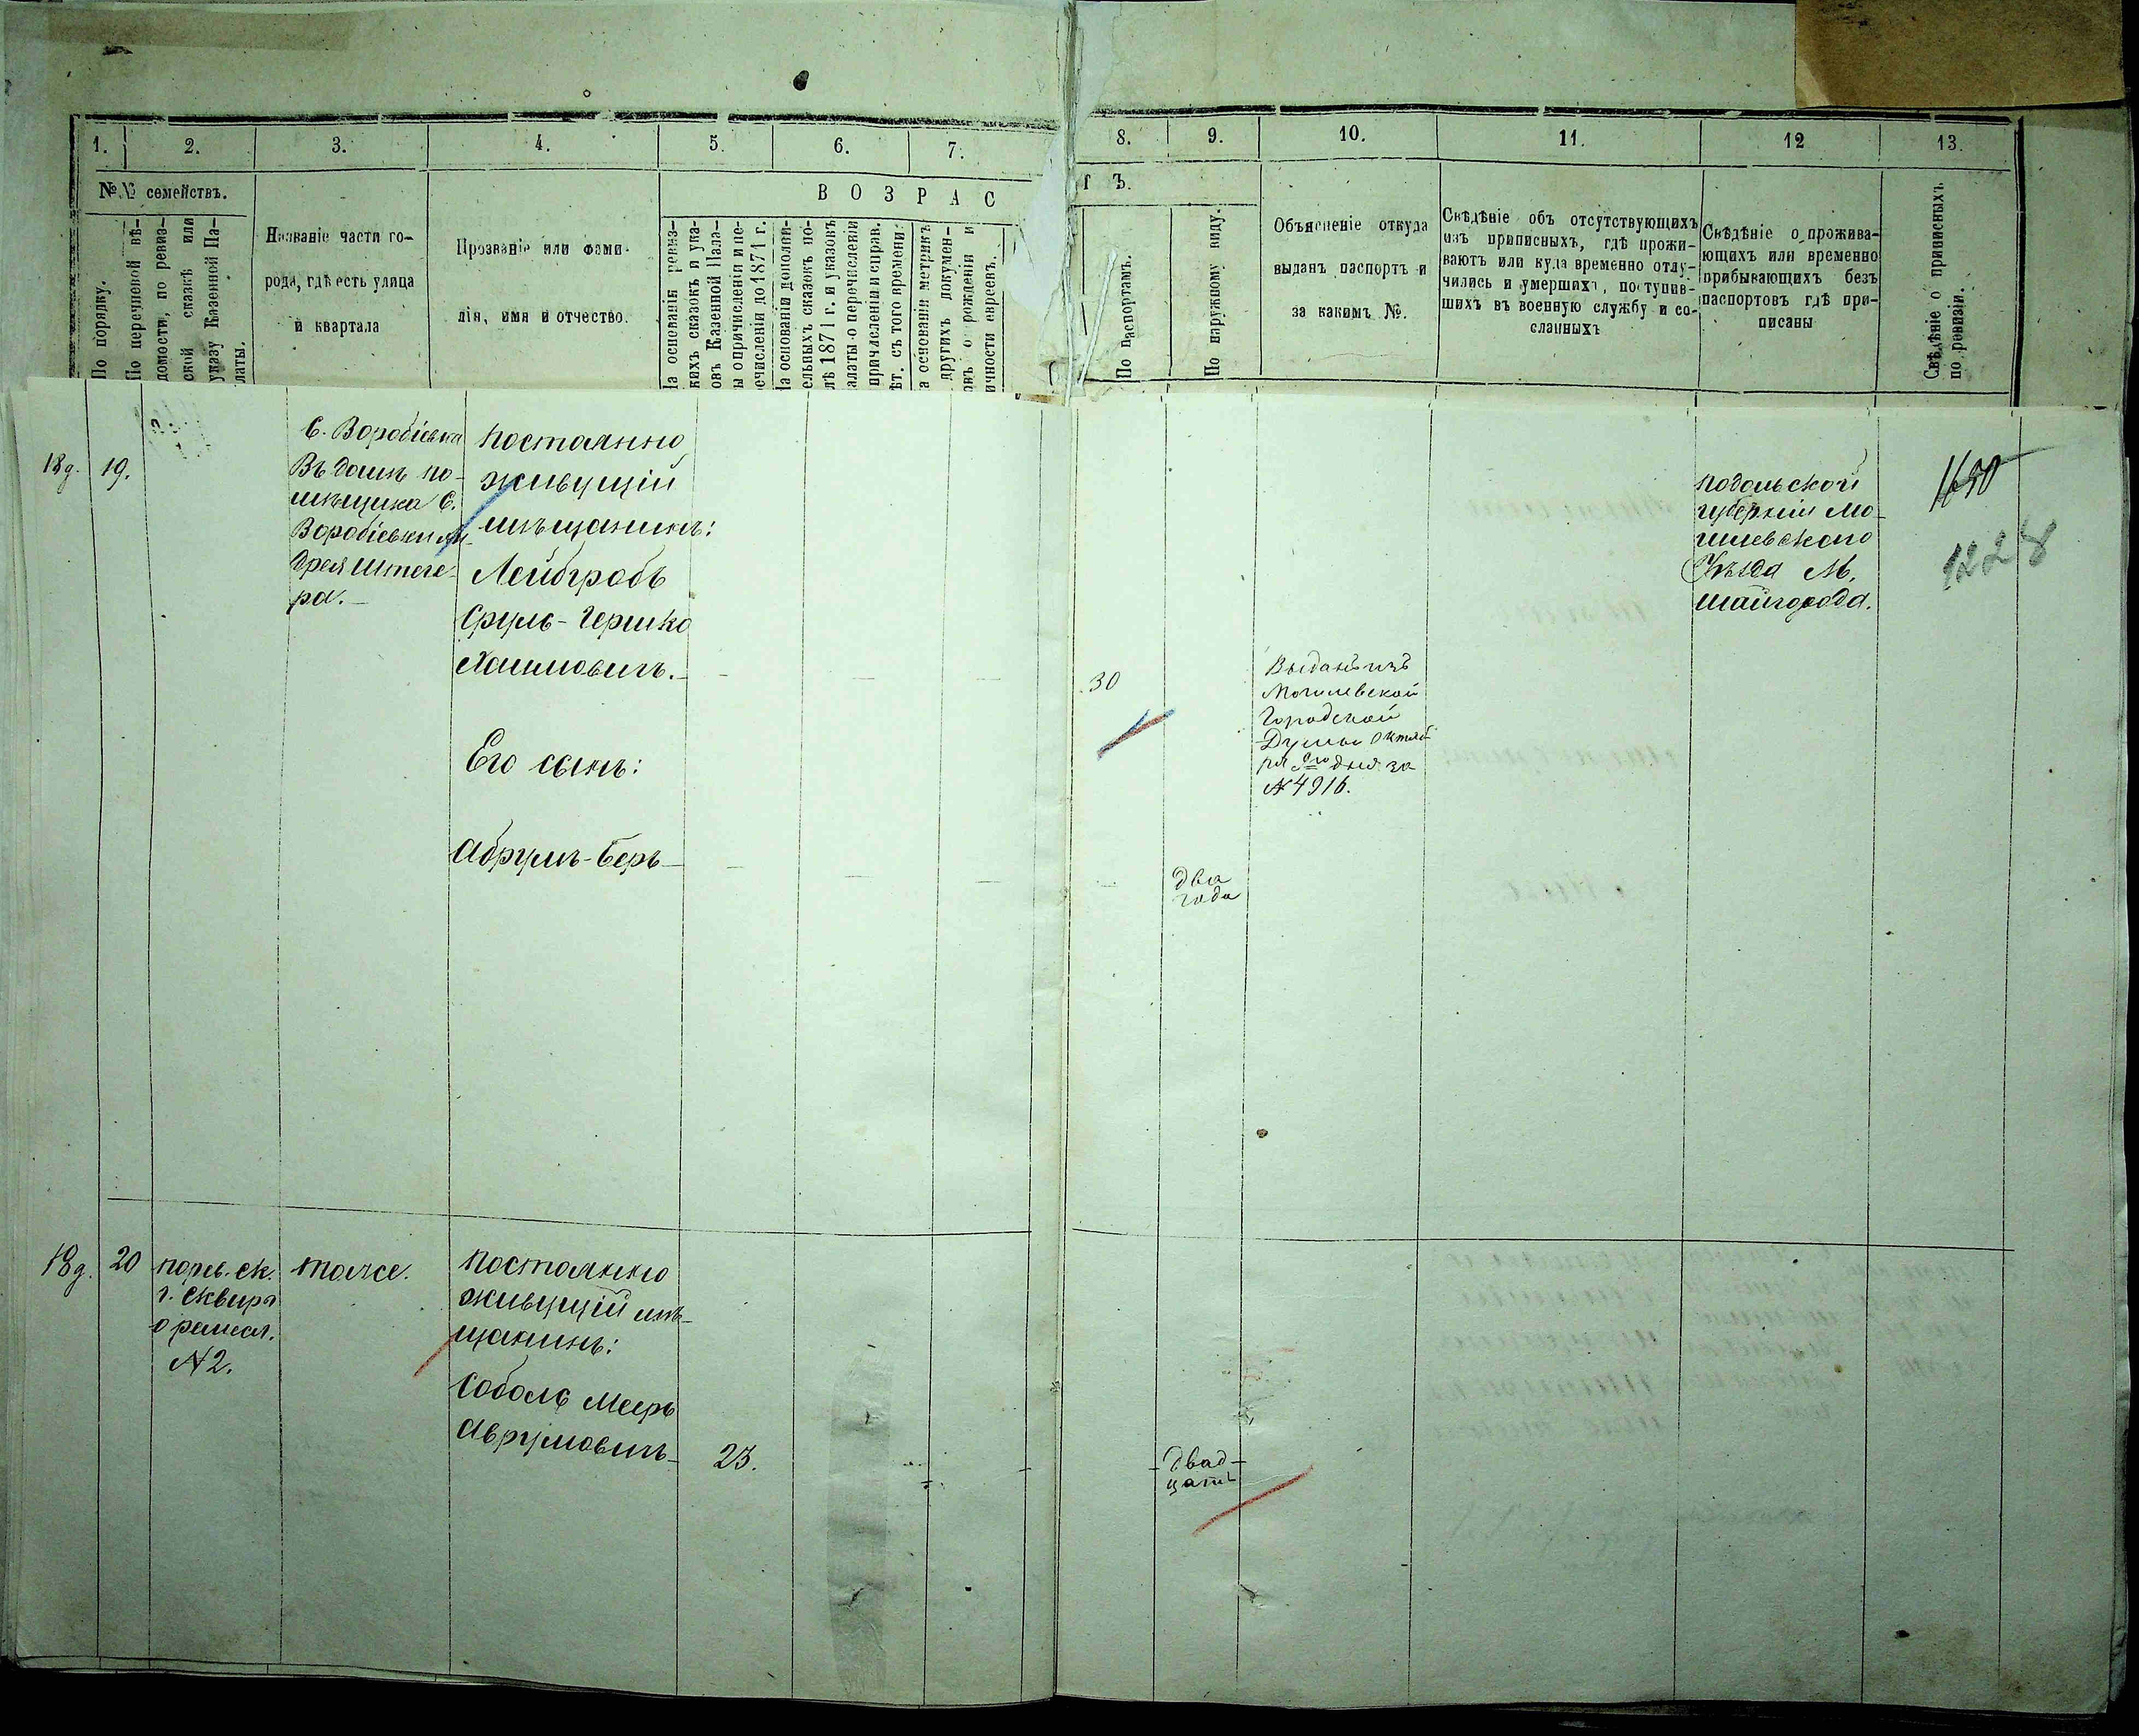 1.
2.
3.
4.
5.
6.
7.
8.
9.
10.
11.
12
13.
№№ семействъ.
По порядку.
По перечневой вѣ-
домости, по ревиз-
ской сказкѣ или
указу Казенной Па-
латы.
Названіе части го-
рода, гдѣ есть улица
и квартала
Прозваніе или фами-
лія, имя и отчество.
В О З Р А С
Т Ъ.
На основаніи ревиз-
кихъ сказокъ и ука-
овъ Казенной Пала-
ы о причисленіи и пе-
ечисленіи до 1871 г.
На основаніи дополни-
ельныхъ сказокъ по-
лѣ 1871 г. и указовъ
алаты о перечисленіи
причисленіи и справ.
ѣт. съ того времени
а основаніи метрикъ
другихъ докумен-
овъ о рожденіи и
ичности евреевъ.
По паспортамъ.
По наружному виду.
Объясненіе откуда
выданъ паспортъ и
за какимъ №.
Свѣдѣніе объ отсутствующихъ
изъ приписныхъ, гдѣ прожи-
ваютъ или куда временно отлу-
чились и умершихъ, поступив-
шихъ въ военную службу и со-
сланныхъ
Свѣдѣніе о прожива-
ющихъ или временно
прибывающихъ безъ
паспортовъ гдѣ при-
писаны
Свѣдѣніе о приписныхъ
по ревизіи.
18 д.
19.
С. Воробіевка
Въ домѣ по-
мѣщика С.
Воробіевки Ан-
дрея Штеге-
ра.
постоянно
живущій
мѣщанинъ:
Лейбгробъ
Сруль-Гершко
Хаимовичъ.
30
Выданъ изъ
Могилевской
Городской
Думы Октяб-
ря дня за
№ 4916.
подольской
губерніи Мо-
гилевскаго
Уѣзда М.
Шайгорода.
1650
1228
Его сынъ:
Абрумъ-Беръ
два
года
18 д.
20
порев. ск.
г. Сквира
о ремесл.
№ 2.
тоже.
постоянно
живущій мѣ-
щанинъ:
Соболь Мееръ
Аврумовичъ
23.
двад-
цать